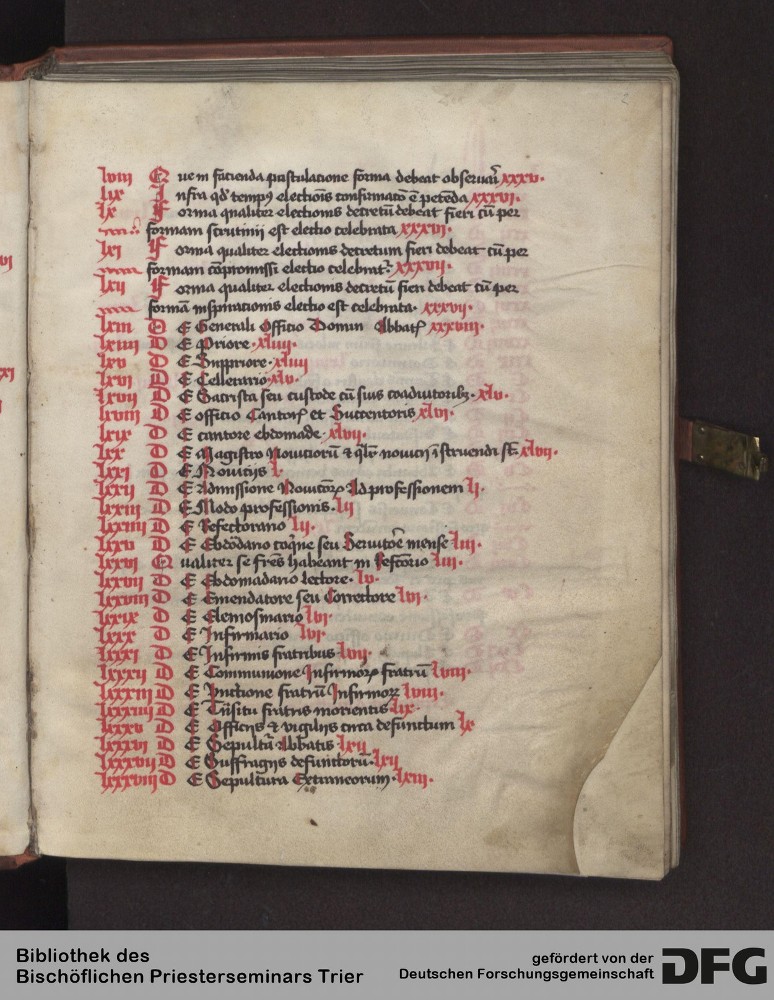 lviii Que in facienda postulacione forma debeat obseruari xxxv.
lix Infra qd' tempus electionis confirmatō ē petēda xxxvi.
lx Forma qualiter electionis decretū debeat fieri cū per
formam scrutinij est electio celebrata xxxvi.
lxi Forma qualiter electionis decretum fieri debeat cū per
formam cōpromissi electio celebrat' xxxvii.
lxii Forma qualiter electionis decretū fieri debeat cū per
formā inspirationis electio est celebrata. xxxvii.
lxiii DE Generali Officio Domini Abbatꝭ xxxviii.
lxiiii DE Priore. xliiii.
lxv DE Suppriore. xliiii
lxvi DE Cellerario. xlv.
lxvii DE Sacrista seu custode cū suis coadiutoribꝫ. xlv.
lxviii DE officio Cantorꝭ et Succentoris xlvi.
lxix DE cantore ebdomade. xlvii.
lxx DE Magistro Nouiciorū & qlr nouicij īstruendi st xlvii.
lxxi DE Nouicijs l.
lxxii DE Admissione Nouicioꝝ Ad professionem li.
lxxiii DE Modo professionis. lii
lxxiiii DE Refectorario lii.
lxxv DE Ebdōdario coqine seu Seruitoē mense liii.
lxxvi Qualiter se frēs habeant in Refcorio liiii.
lxxvii DE Ebdomadario lectore. lv.
lxxviii DE Emendatore seu Correctore lvi.
lxxix DE Elemosinario lvi.
lxxx DE Infirmario lvi.
lxxxi DE Infirmis fratribus lvii.
lxxxii DE Communione Infirmoꝝ fratrū lviii.
lxxxiii DE Vnctione fratrū Infirmoꝝ lviii.
lxxxiiii DE Trāsitu fratris morientis lix.
lxxxv DE Officijs & vigilijs circa defunctum lx
lxxxvi DE Sepultura Abbatis lxii
lxxxvii DE Suffragijs defunctorū. lxii
lxxxviii DE Sepultura Extraneorum. lxiii.
Bibliothek des
Bischöflichen Priesterseminars Trier
gefördert von der
Deutschen Forschungsgemeinschaft DFG